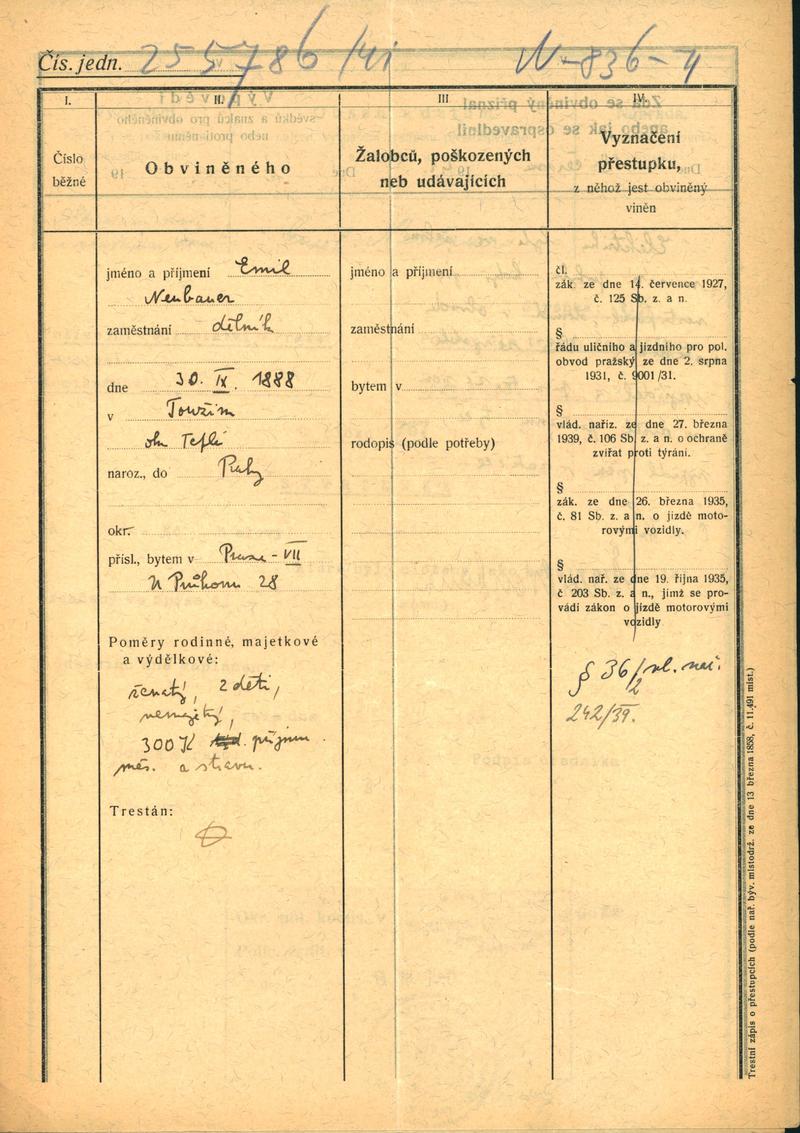 Čís. jedn. 255786/41 N-836-4
I. II. III IV.
Číslo
běžné
Obviněného
Žalobců, poškozených
neb udávajících
Vyznačení
přestupku,
z něhož jest obviněný
viněn
jméno a příjmení Emil
Neubauer
zaměstnání dělník
dne 30. IX. 1888
v Toužim
okr. Teplá
naroz., do Prahy
okr.
přísl., bytem v Praze-VII
N Průhonu 28
Poměry rodinné, majetkové
a výdělkové:
ženatý, 2 děti,
nemajetný,
300 K příjmu
měs. a stravu.
Trestán:
jméno a příjmení
zaměstnání
bytem v
rodopis (podle potřeby)
čl.
zák. ze dne 14. července 1927,
č. 125 Sb. z. a n.
§
řádu uličního a jízdního pro pol.
obvod pražský ze dne 2. srpna
1931, č. 9001/31.
§
vlád. naříz. ze dne 27. března
1939, č. 106 Sb. z. a n. o ochraně
zvířat proti týrání.
§
zák. ze dne 26. března 1935,
č. 81 Sb. z. a n. o jízdě moto-
rovými vozidly.
§
vlád. nař. ze dne 19. října 1935,
č 203 Sb. z. a n., jímž se pro-
vádí zákon o jízdě motorovými
vozidly
§ 36/2 vl. nař.
242/39.
Trestní zápis o přestupcích (podle nař. býv. místodrž. ze dne 13 března 1858, č. 11.491 míst.)